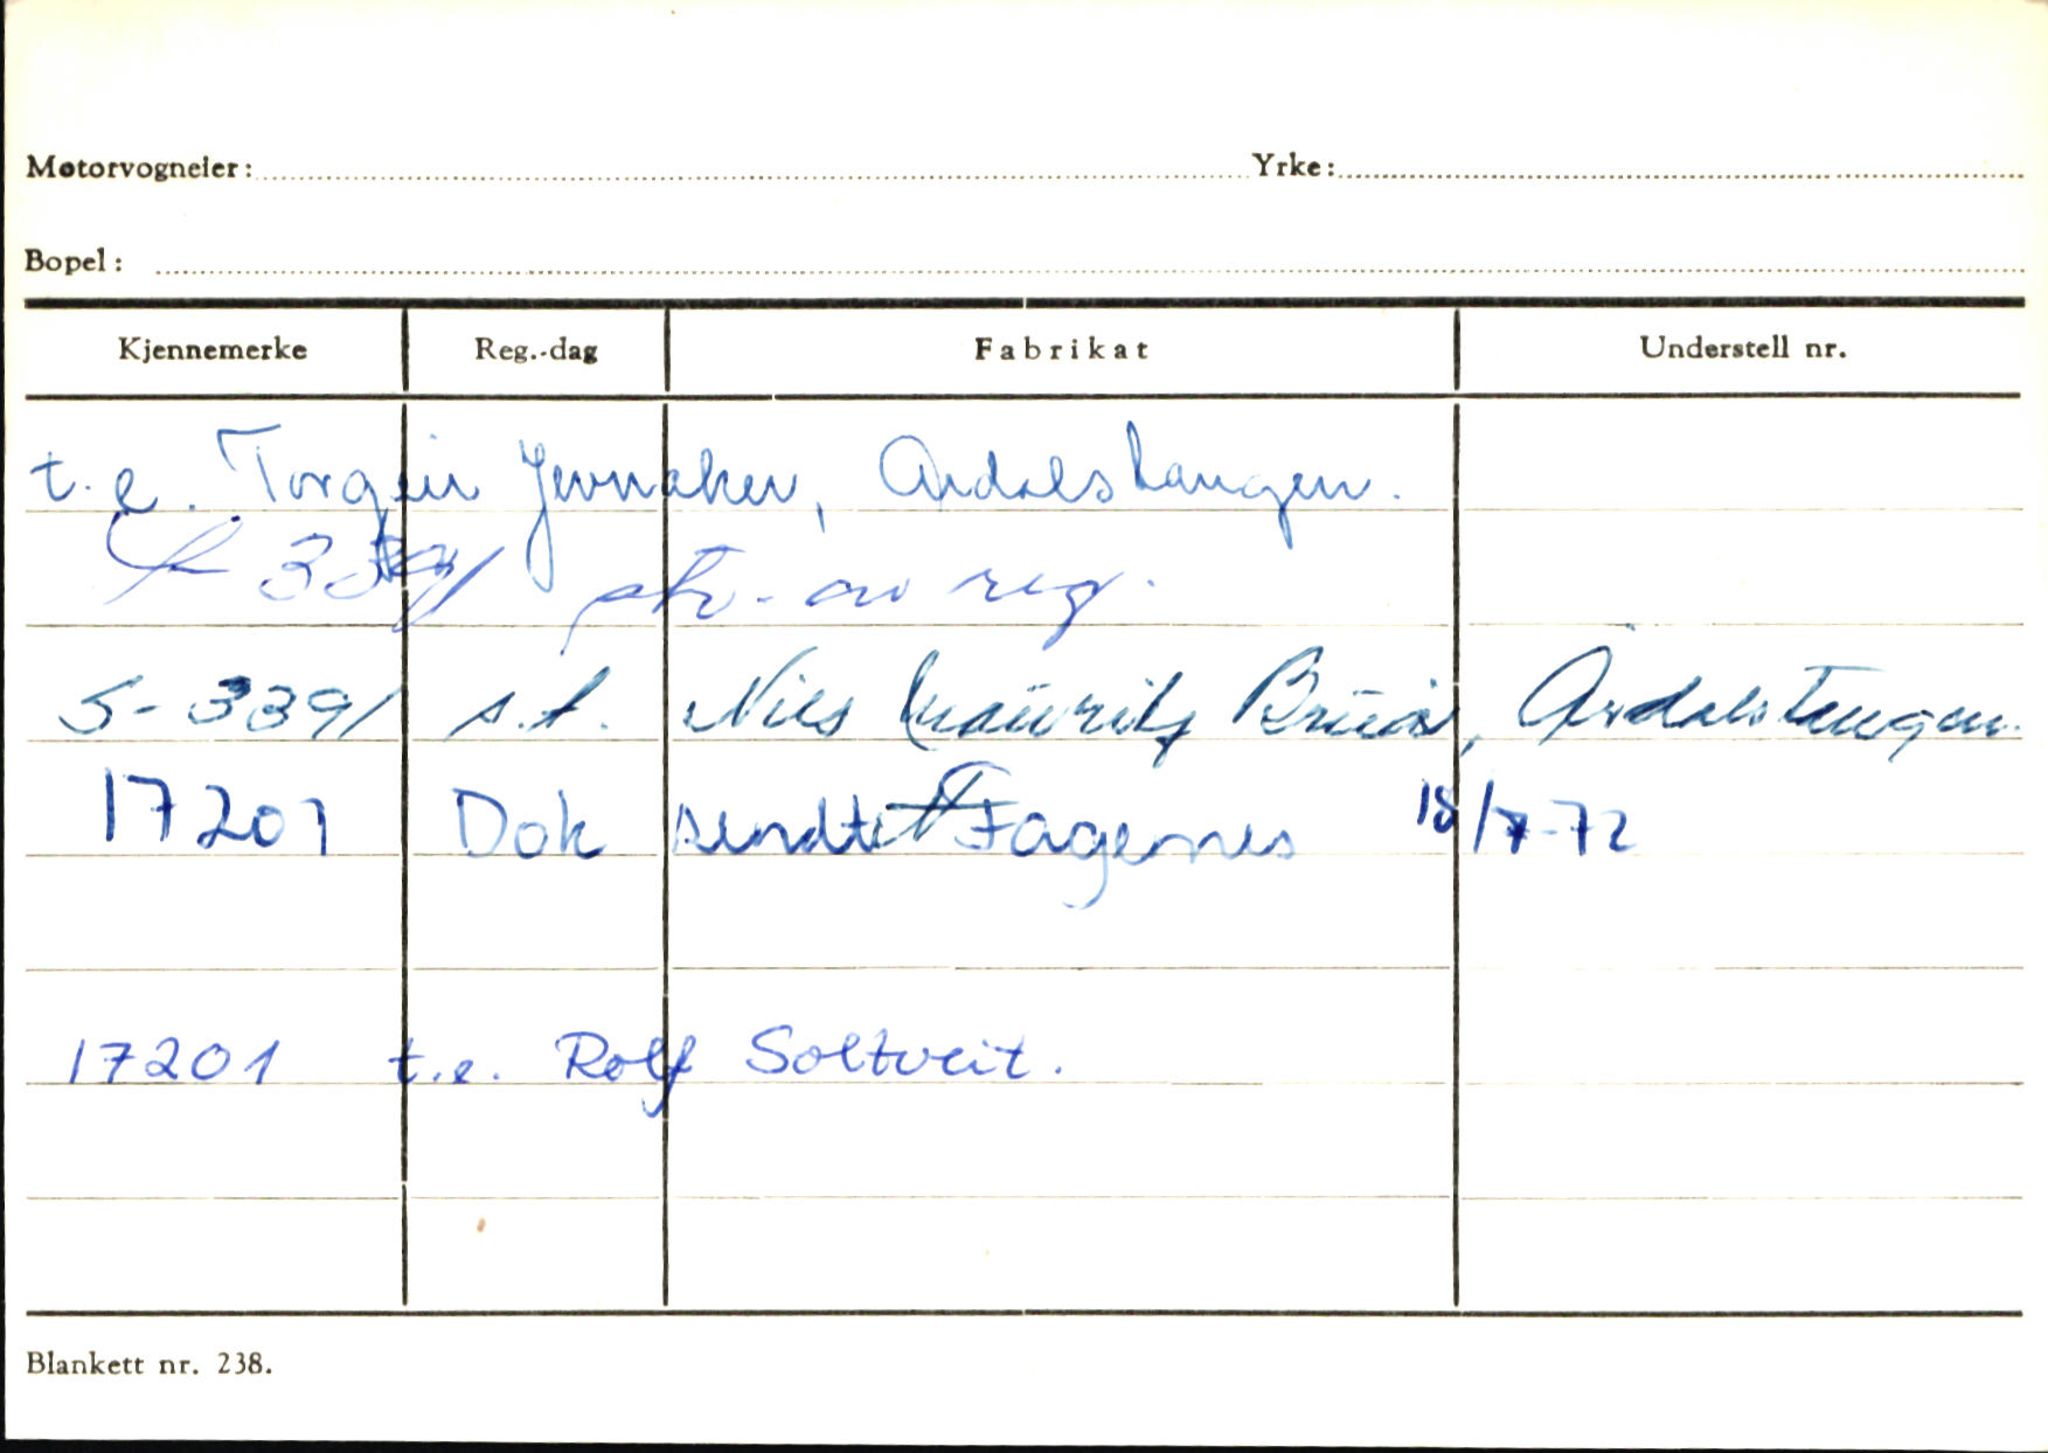 Motorvogneier: Yrke:
Bopel:
Kjennemerke Reg.-dag Fabrikat Understell nr.
t.e. Torgeir Jevnaker, Årdalstangen.
3391 av reg.
S-3391 s.t. Nils Mauritz Bruás, Årdalstangen.
17201 Dok sendt Fagernes 18/7-72
17201 t.e. Rolf Soltveit.
Blankett nr. 238.